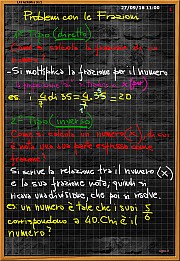 27/09/18 11:00
Problemi con le Frazioni
1° Tipo (diretto)
Come si calcola la frazione di un
numero?
-Si moltiplica la frazione per il numero
es. 4/7 di 35 = 4/7 · 35 = 20
2° Tipo (inverso)
Come si calcola un numero (x), di cui
è nota una sua parte espressa come
frazione?
Si scrive la relazione tra il numero (x)
e la sua frazione nota, quindi si
ricava una divisione, che poi si risolve.
es un numero è tale che i suoi 5/6
corrispondono a 40. Chi è il
numero?